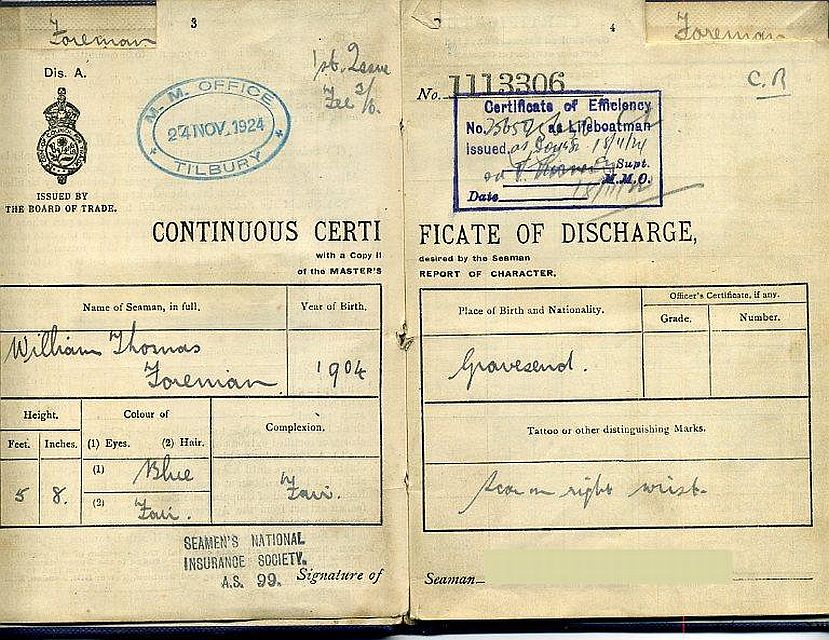 Foreman
3
Dis. A.
1st. Issue
Fee 3/6.
M. M. OFFICE
24 NOV. 1924
TILBURY
ISSUED BY
THE BOARD OF TRADE.
CONTINUOUS CERTI
with a Copy if
of the MASTER'S
Name of Seaman, in full.
Year of Birth.
William Thomas
Foreman
1904
Height.
Colour of
Complexion.
Feet.
Inches.
(1) Eyes.
(2) Hair.
5
8.
(1) Blue
(2) Fair.
Fair.
SEAMEN'S NATIONAL
INSURANCE SOCIETY.
A.S. 99.
Signature of
4
Foreman
No. 1113306
C.R
Certificate of Efficiency
No. as Lifeboatman
issued
Supt.
M.M.O.
Date
FICATE OF DISCHARGE,
desired by the Seaman
REPORT OF CHARACTER.
Place of Birth and Nationality.
Officer's Certificate, if any.
Grade.
Number.
Gravesend.
Tattoo or other distinguishing Marks.
Scar on right wrist.
Seaman